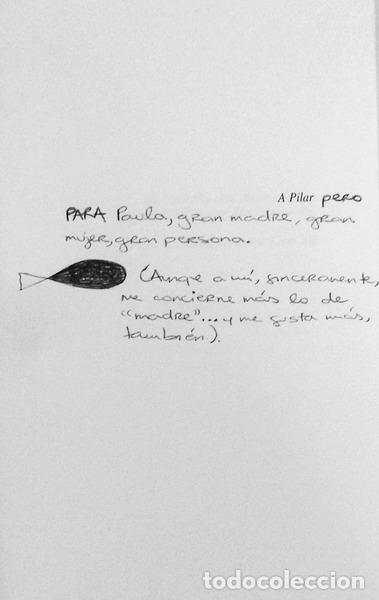 A Pilar pero
PARA Paula, gran madre, gran
mujer, gran persona.
(Aunqe a mí, sinceramente,
me concierne más lo de
"madre"... y me gusta más,
también).
todocoleccion